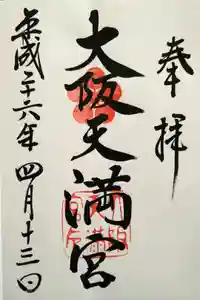 奉拝
大阪天満宮
平成二十六年四月十三日